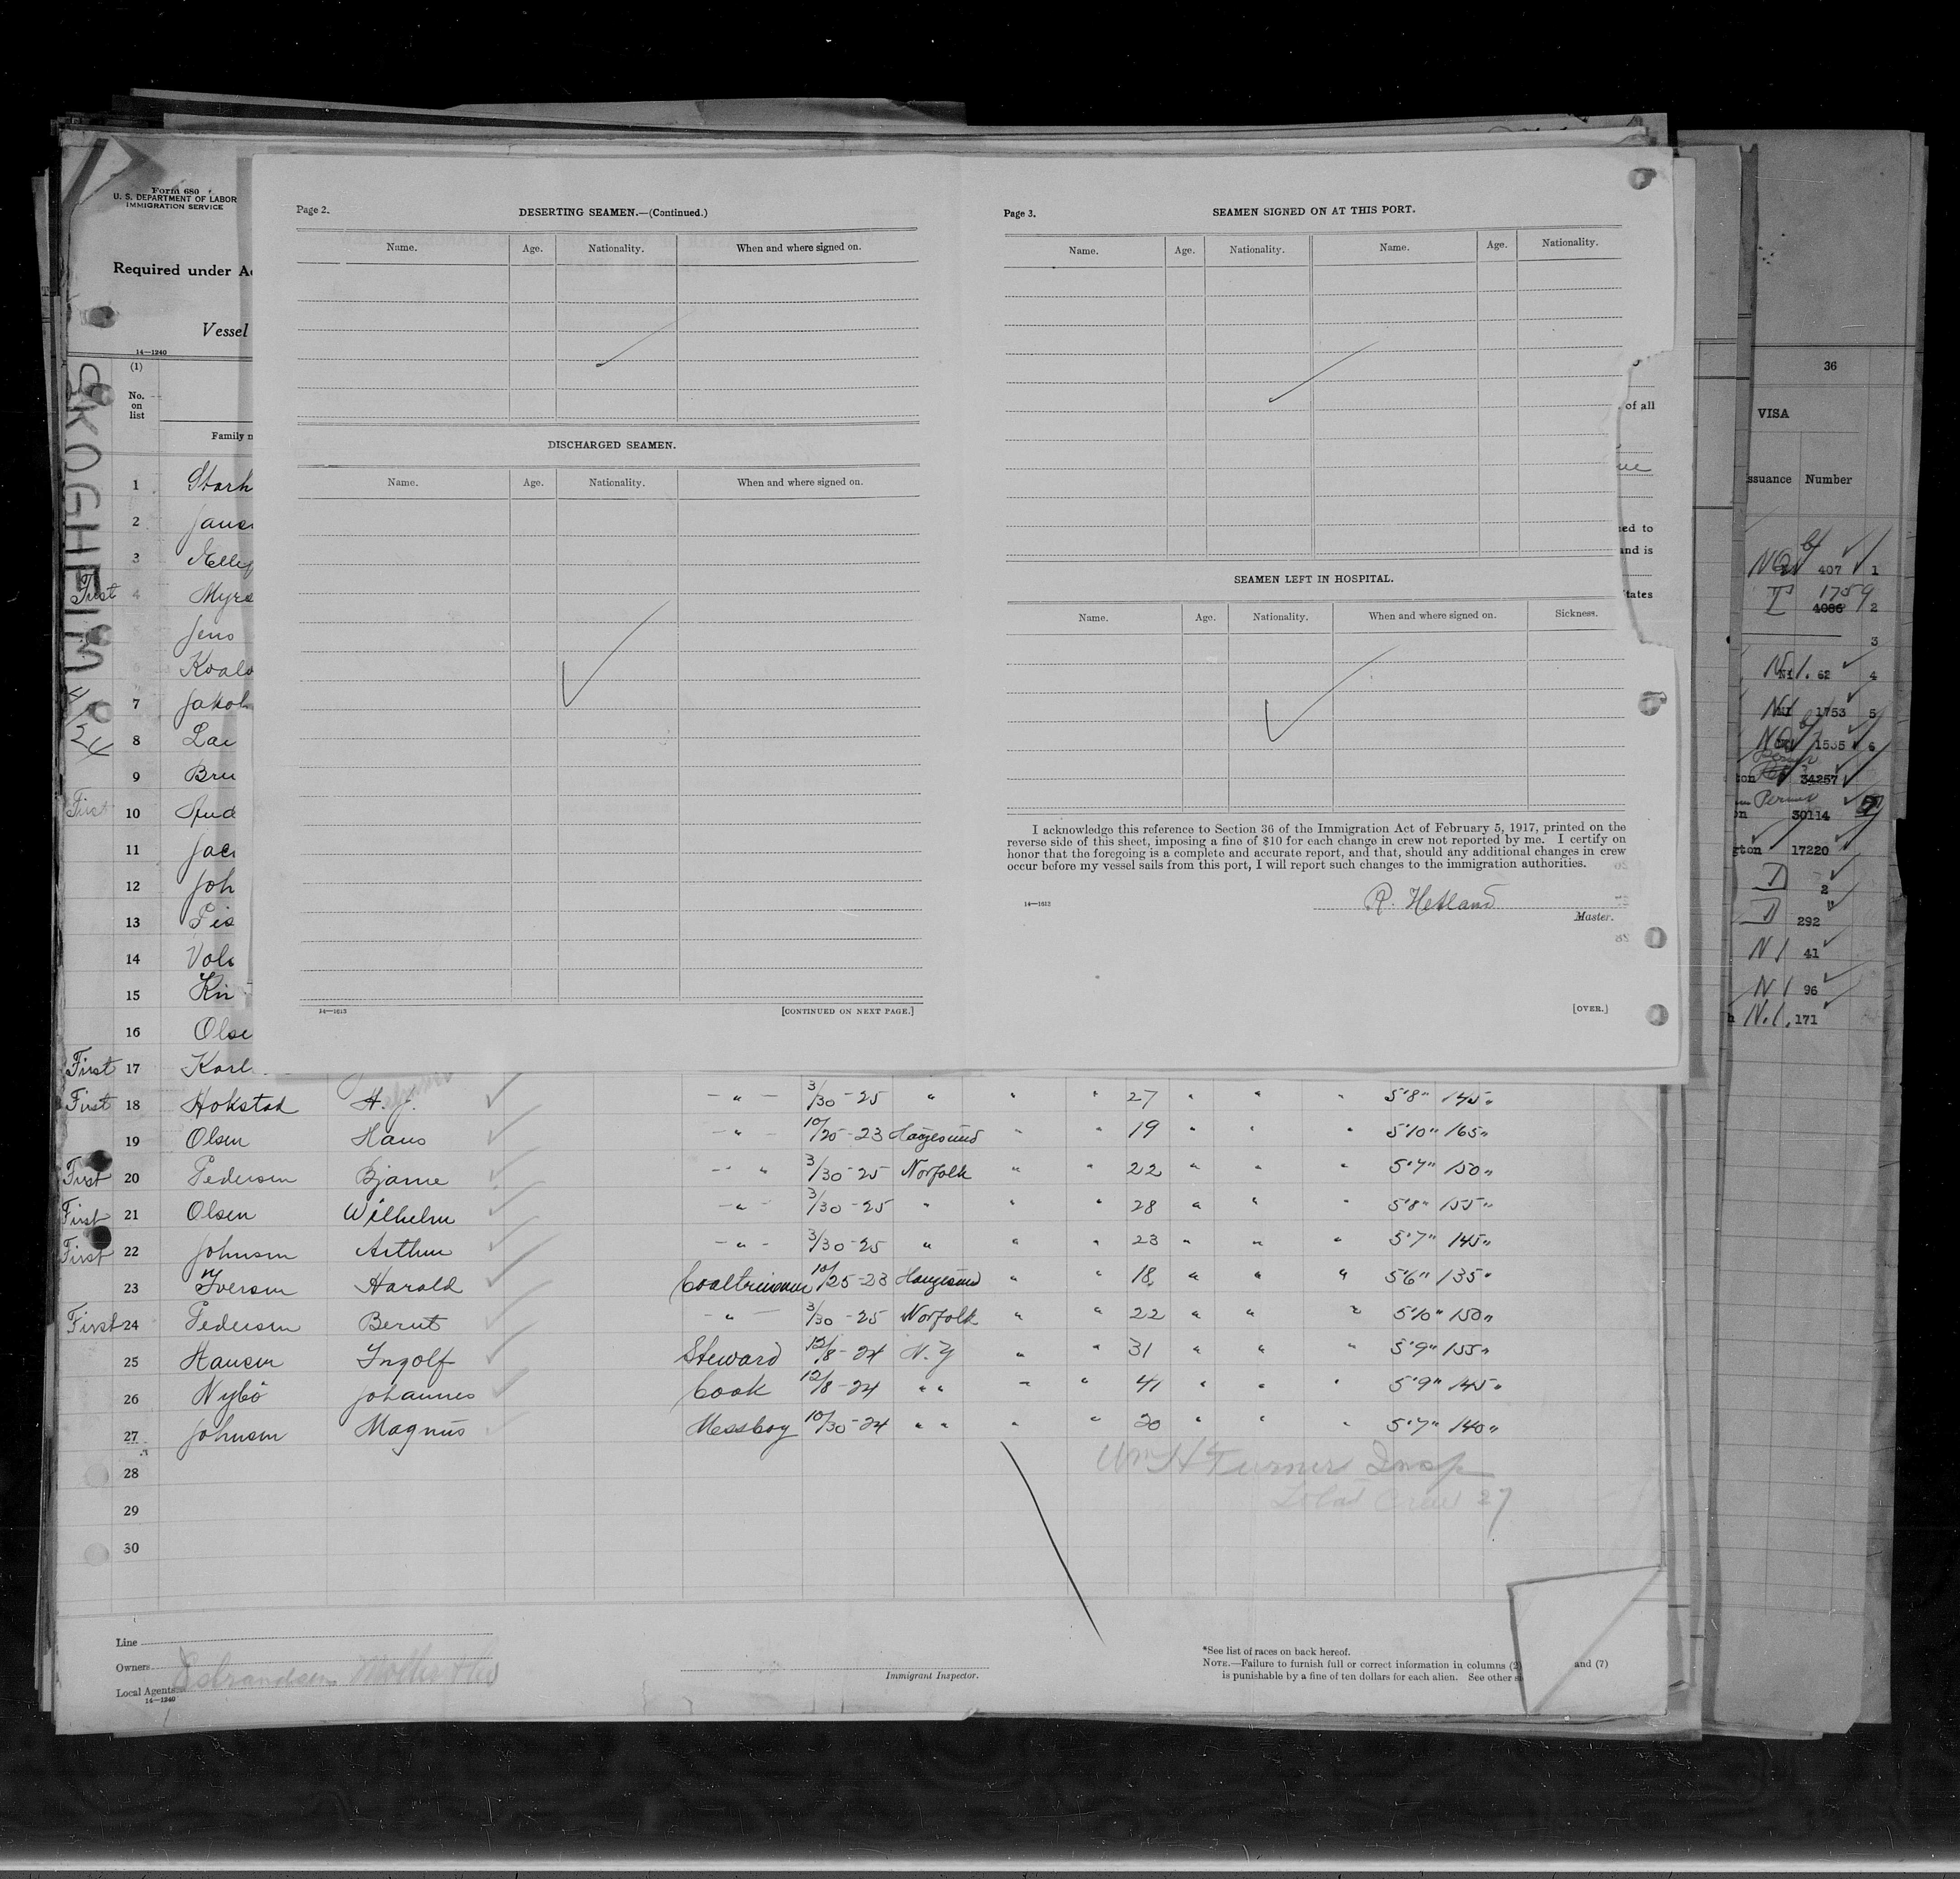 Form 680
U. S. DEPARTMENT OF LABOR
IMMIGRATION SERVICE
Required under A
Vessel
14—1240
(1)
No.
on
list
Family n
SKOGHEIM
4/24
1 Stark
2 Janse
3 Ellef
First 4 Myrs
Jens
Koalo
7 Jakob
8 Lar
9 Bru
First 10 And
11 Jac
12 Joh
13 Pis
14 Vol
15 Kri
16 Olse
First 17 Karl
Page 2.
DESERTING SEAMEN.—(Continued.)
Name. Age. Nationality. When and where signed on.
DISCHARGED SEAMEN.
Name. Age. Nationality. When and where signed on.
14—1613
[CONTINUED ON NEXT PAGE.]
Page 3.
SEAMEN SIGNED ON AT THIS PORT.
Name. Age. Nationality. Name. Age. Nationality.
SEAMEN LEFT IN HOSPITAL.
Name. Age. Nationality. When and where signed on. Sickness.
I acknowledge this reference to Section 36 of the Immigration Act of February 5, 1917, printed on the
reverse side of this sheet, imposing a fine of $10 for each change in crew not reported by me. I certify on
honor that the foregoing is a complete and accurate report, and that, should any additional changes in crew
occur before my vessel sails from this port, I will report such changes to the immigration authorities.
14—1613
R. Hetland
Master.
[OVER.]
of all
ue
ed to
and is
tates
36
VISA
ssuance Number
407 1
1759
4086 2
3
N.I. 62 4
NI 1753 5
1535 6
ton 34257
Permit
on 30114
gton 17220
2
292
N I 41
N I 96
N.I. 171
First 18 Hokstad H. J. — " — 3/30-25 " " " 27 " " " 5'8" 145"
19 Olsen Hans — " — 10/25-23 Haugesund " " 19 " " " 5'10" 165"
First 20 Pedersen Bjarne — " 3/30-25 Norfolk " " 22 " " " 5'7" 150"
First 21 Olsen Wilhelm — " — 3/30-25 " " " 28 " " " 5'8" 155"
First 22 Johnsen Arthur — " — 3/30-25 " " " 23 " " " 5'7" 145"
23 Iversen Harald Coaltrimmer 10/25-23 Haugesund " " 18 " " " 5'6" 135"
First 24 Pedersen Berut — " — 3/30-25 Norfolk " " 22 " " " 5'10" 150"
25 Hansen Ingolf Steward 12/8-24 N.Y " " 31 " " " 5'9" 155"
26 Nybö Johannes Cook 12/8-24 " " " " 41 " " " 5'9" 145"
27 Johnsen Magnus Messboy 10/30-24 " " " " 20 " " " 5'7" 140"
28
29
30
Wm H Turner Insp
Total Crew 27
Line
Owners
Local Agents
14—1240
Immigrant Inspector.
*See list of races on back hereof.
NOTE.—Failure to furnish full or correct information in columns (2) and (7)
is punishable by a fine of ten dollars for each alien. See other si